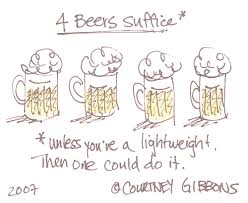 4 Beers Suffice*
*unless you're a lightweight.
Then one could do it.
2007 @COURTNEY GIBBONS